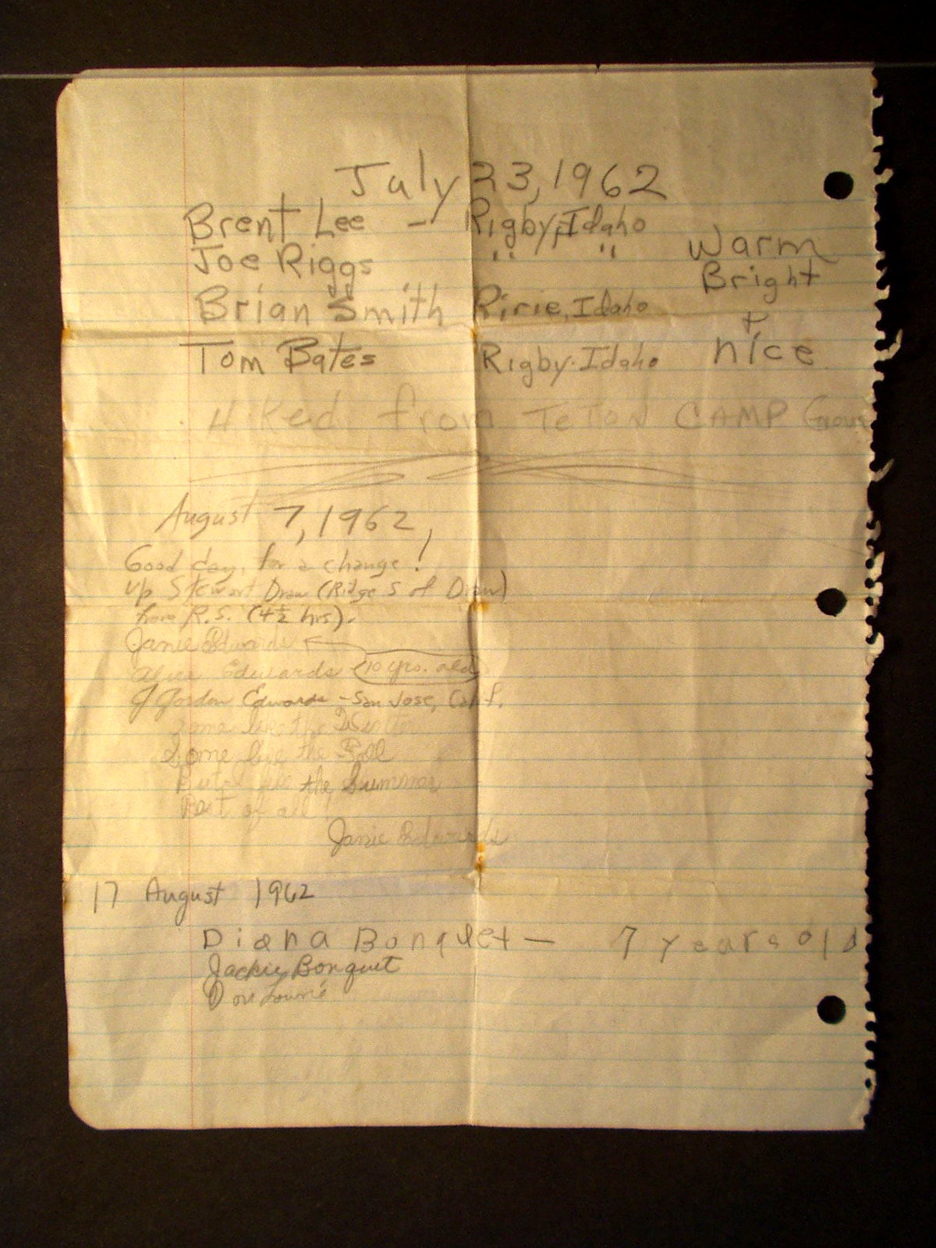 July 23, 1962
Brent Lee - Rigby, Idaho
Joe Riggs " "
Warm
Bright
Brian Smith Ririe, Idaho
+
nice
Tom Bates Rigby. Idaho
Hiked from Teton CAMP Groun
August 7, 1962
Good day, for a change!
up Stewart Draw (Ridge S of Draw)
from R.S. (4½ hrs).
Janie Edwards
Alice Edwards (10 yrs. old)
J Gordon Edwards - San Jose, Calif.
Some like the Winter
Some like the Fall
But I like the Summer
Best of all
Janie Edwards
17 August 1962
Diana Bonquet - 7 years old
Jackie Bonquet